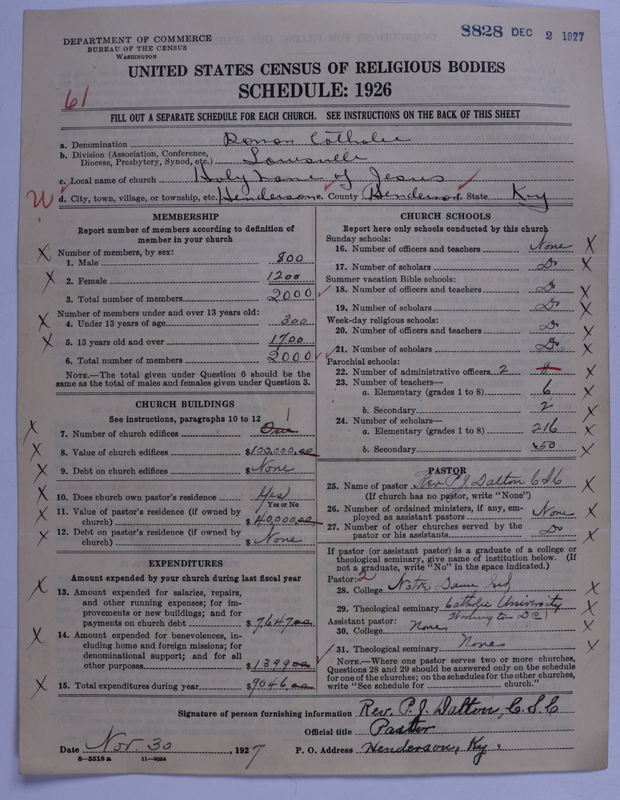 8828 DEC 2 1927
DEPARTMENT OF COMMERCE
BUREAU OF THE CENSUS
WASHINGTON
UNITED STATES CENSUS OF RELIGIOUS BODIES
SCHEDULE: 1926
61
FILL OUT A SEPARATE SCHEDULE FOR EACH CHURCH. SEE INSTRUCTIONS ON THE BACK OF THIS SHEET
a. Denomination Roman Catholic
b. Division (Association, Conference, Diocese, Presbytery, Synod, etc.) Louisville
c. Local name of church Holy Name of Jesus
d. City, town, village, or township, etc. Henderson County Henderson State Ky
MEMBERSHIP
Report number of members according to definition of
member in your church
Number of members, by sex:
1. Male 800
2. Female 1200
3. Total number of members 2000
Number of members under and over 13 years old:
4. Under 13 years of age 300
5. 13 years old and over 1700
6. Total number of members 2000
NOTE.—The total given under Question 6 should be
same as the total of males and females given under Question 3.
CHURCH BUILDINGS
See instructions, paragraphs 10 to 12
7. Number of church edifices One 1
8. Value of church edifices $100,000.00
9. Debt on church edifices $None
10. Does church own pastor's residence Yes
Yes or No
11. Value of pastor's residence (if owned by
church) $40,000.00
12. Debt on pastor's residence (if owned by
church) $None
EXPENDITURES
Amount expended by your church during last fiscal year
13. Amount expended for salaries, repairs,
and other running expenses; for im-
provements or new buildings; and for
payments on church debt $7647.00
14. Amount expended for benevolences, in-
cluding home and foreign missions; for
denominational support; and for all
other purposes $1399.00
15. Total expenditures during year $9046.00
CHURCH SCHOOLS
Report here only schools conducted by this church
Sunday schools:
16. Number of officers and teachers None
17. Number of scholars Do
Summer vacation Bible schools:
18. Number of officers and teachers Do
19. Number of scholars Do
Week-day religious schools:
20. Number of officers and teachers Do
21. Number of scholars Do
Parochial schools:
22. Number of administrative officers 2
23. Number of teachers—
a. Elementary (grades 1 to 8) 6
b. Secondary 2
24. Number of scholars—
a. Elementary (grades 1 to 8) 216
b. Secondary 50
PASTOR
25. Name of pastor Rev P J Dalton CSC
(If church has no pastor, write "None")
26. Number of ordained ministers, if any, em-
ployed as assistant pastors None
27. Number of other churches served by the
pastor or his assistants Do
If pastor (or assistant pastor) is a graduate of a college or
theological seminary, give name of institution below. (If
not a graduate, write "No" in the space indicated.)
Pastor: 2
28. College Notre Dame Ind
29. Theological seminary Catholic University
Washington DC
Assistant pastor:
30. College None
31. Theological seminary None
NOTE.—Where one pastor serves two or more churches,
Questions 28 and 29 should be answered only on the schedule
for one of the churches; on the schedules for the other churches,
write "See schedule for church."
Signature of person furnishing information Rev. P. J. Dalton, C.S.C
Official title Pastor
Date Nov. 30, 1927 P. O. Address Henderson, Ky.
8—5518 a 11—9084